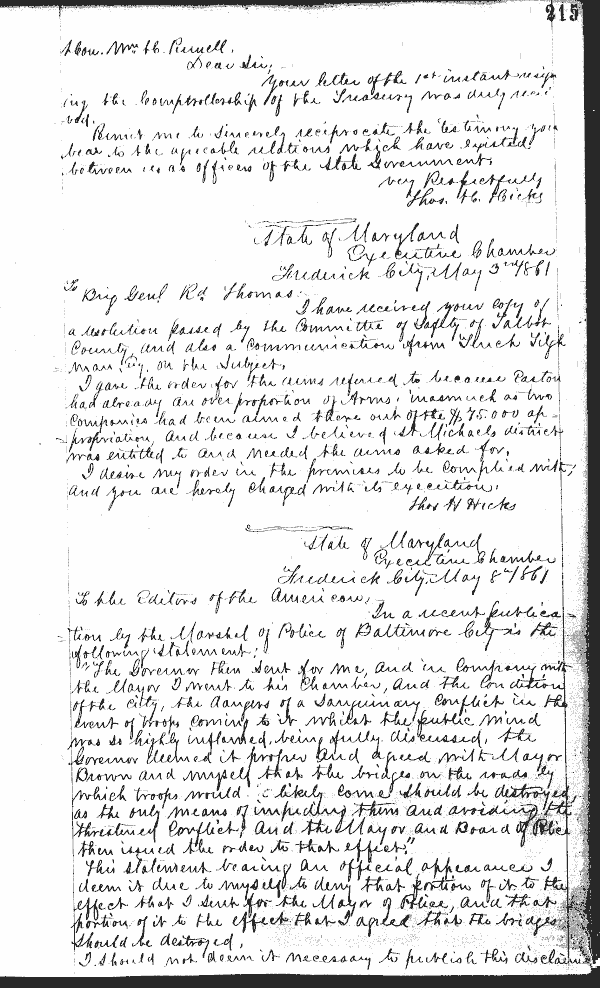 215
Hon. Wm. H. Purnell.
Dear Sir,
Your letter of the 1st instant resign
ing the Comptrollership of the Treasury was duly recei
ved.
Permit me to sincerely reciprocate the testimony you
bear to the agreeable relations which have existed
between us as officers of the State Government.
very Respectfully
Thos. H. Hicks
State of Maryland
Executive Chamber
Frederick City, May 3rd 1861
To Brig Genl Rd Thomas.
I have received your copy of
a resolution passed by the Committee of Safety of Talbot
County and also a communication from Tench Tilgh
man, Esq. on the subject.
I gave the order for the arms referred to because Easton
had already an over proportion of Arms, inasmuch as two
Companies had been armed there out of the $75.000 ap-
propriation, and because I believed St Michaels district
was entitled to and needed the arms asked for.
I desire my order in the premises to be complied with,
and you are hereby charged with its execution.
Thos H Hicks
State of Maryland
Executive Chamber
Frederick City, May 8th 1861
To the Editors of the American,
In a recent publica-
tion by the Marshal of Police of Baltimore City is the
following statement;
"The Governor then sent for me, and in company with
the Mayor I went to his Chamber, and the Condition
of the city, the dangers of a sanguinary conflict in the
event of troops coming to it whilst the public mind
was so highly inflamed, being fully discussed, the
Governor deemed it proper and agreed with Mayor
Brown and myself that the bridges on the roads by
which troops would likely come should be destroyed,
as the only means of impeding them and avoiding the
threatened Conflict, and the Mayor and Board of Police
then issued the order to that effect."
This statement bearing an official appearance I
deem it due to myself to deny that portion of it to the
effect that I sent for the Mayor of Police, and that
portion of it to the effect that I agreed that the bridges
should be destroyed.
I should not deem it necessary to publish this disclaimer